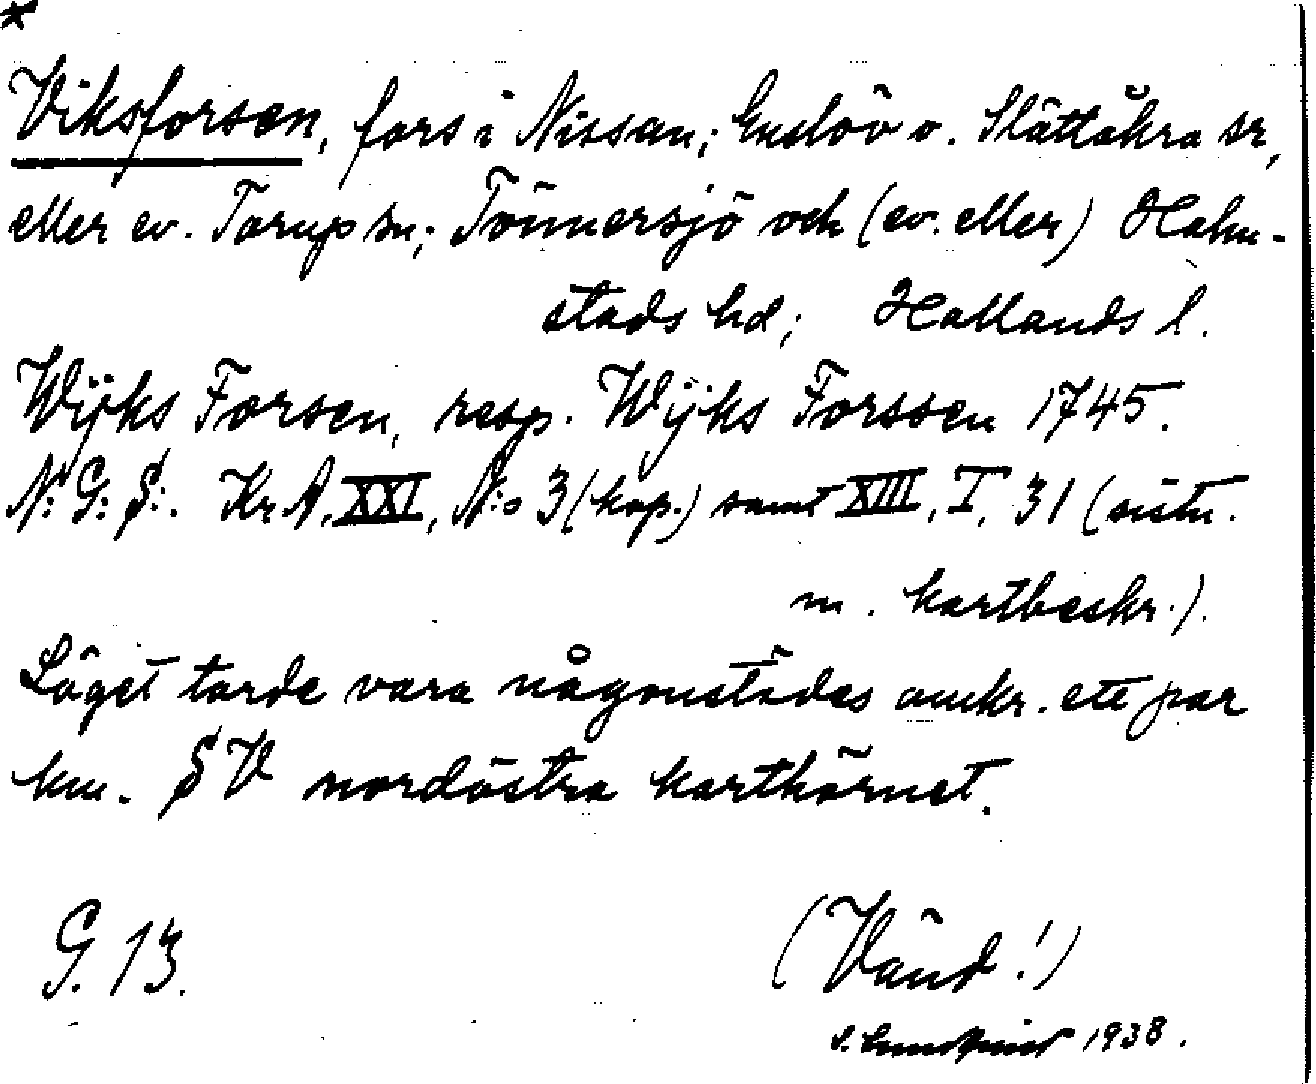 *
Viksforsen, fors i Nissan; Enslöv o. Slättåkra sr,
eller ev. Torup sn; Tönnersjö och (ev. eller) Halm-
stads hd; Hallands l.
Wijks Forsen, resp. Wijks Forssen 1745.
N: G: S:. Kr A, XXI, N:o 3 (kop.) samt XIII, I, 31 (sistn.
m. kartbeskr.).
Läget torde vara någonstädes omkr. ett par
km. SV nordöstra karthörnet.
G. 13.
(Vänd!)
1938.